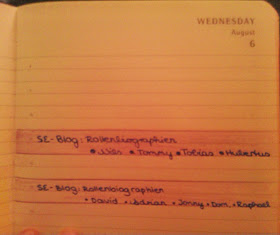 WEDNESDAY
August
6
SE-Blog: Rollenbiographien
• Tommy • Tobias • Hubertus
SE-Blog: Rollenbiographien
• David • Adrian • Jonny • Dom • Raphael